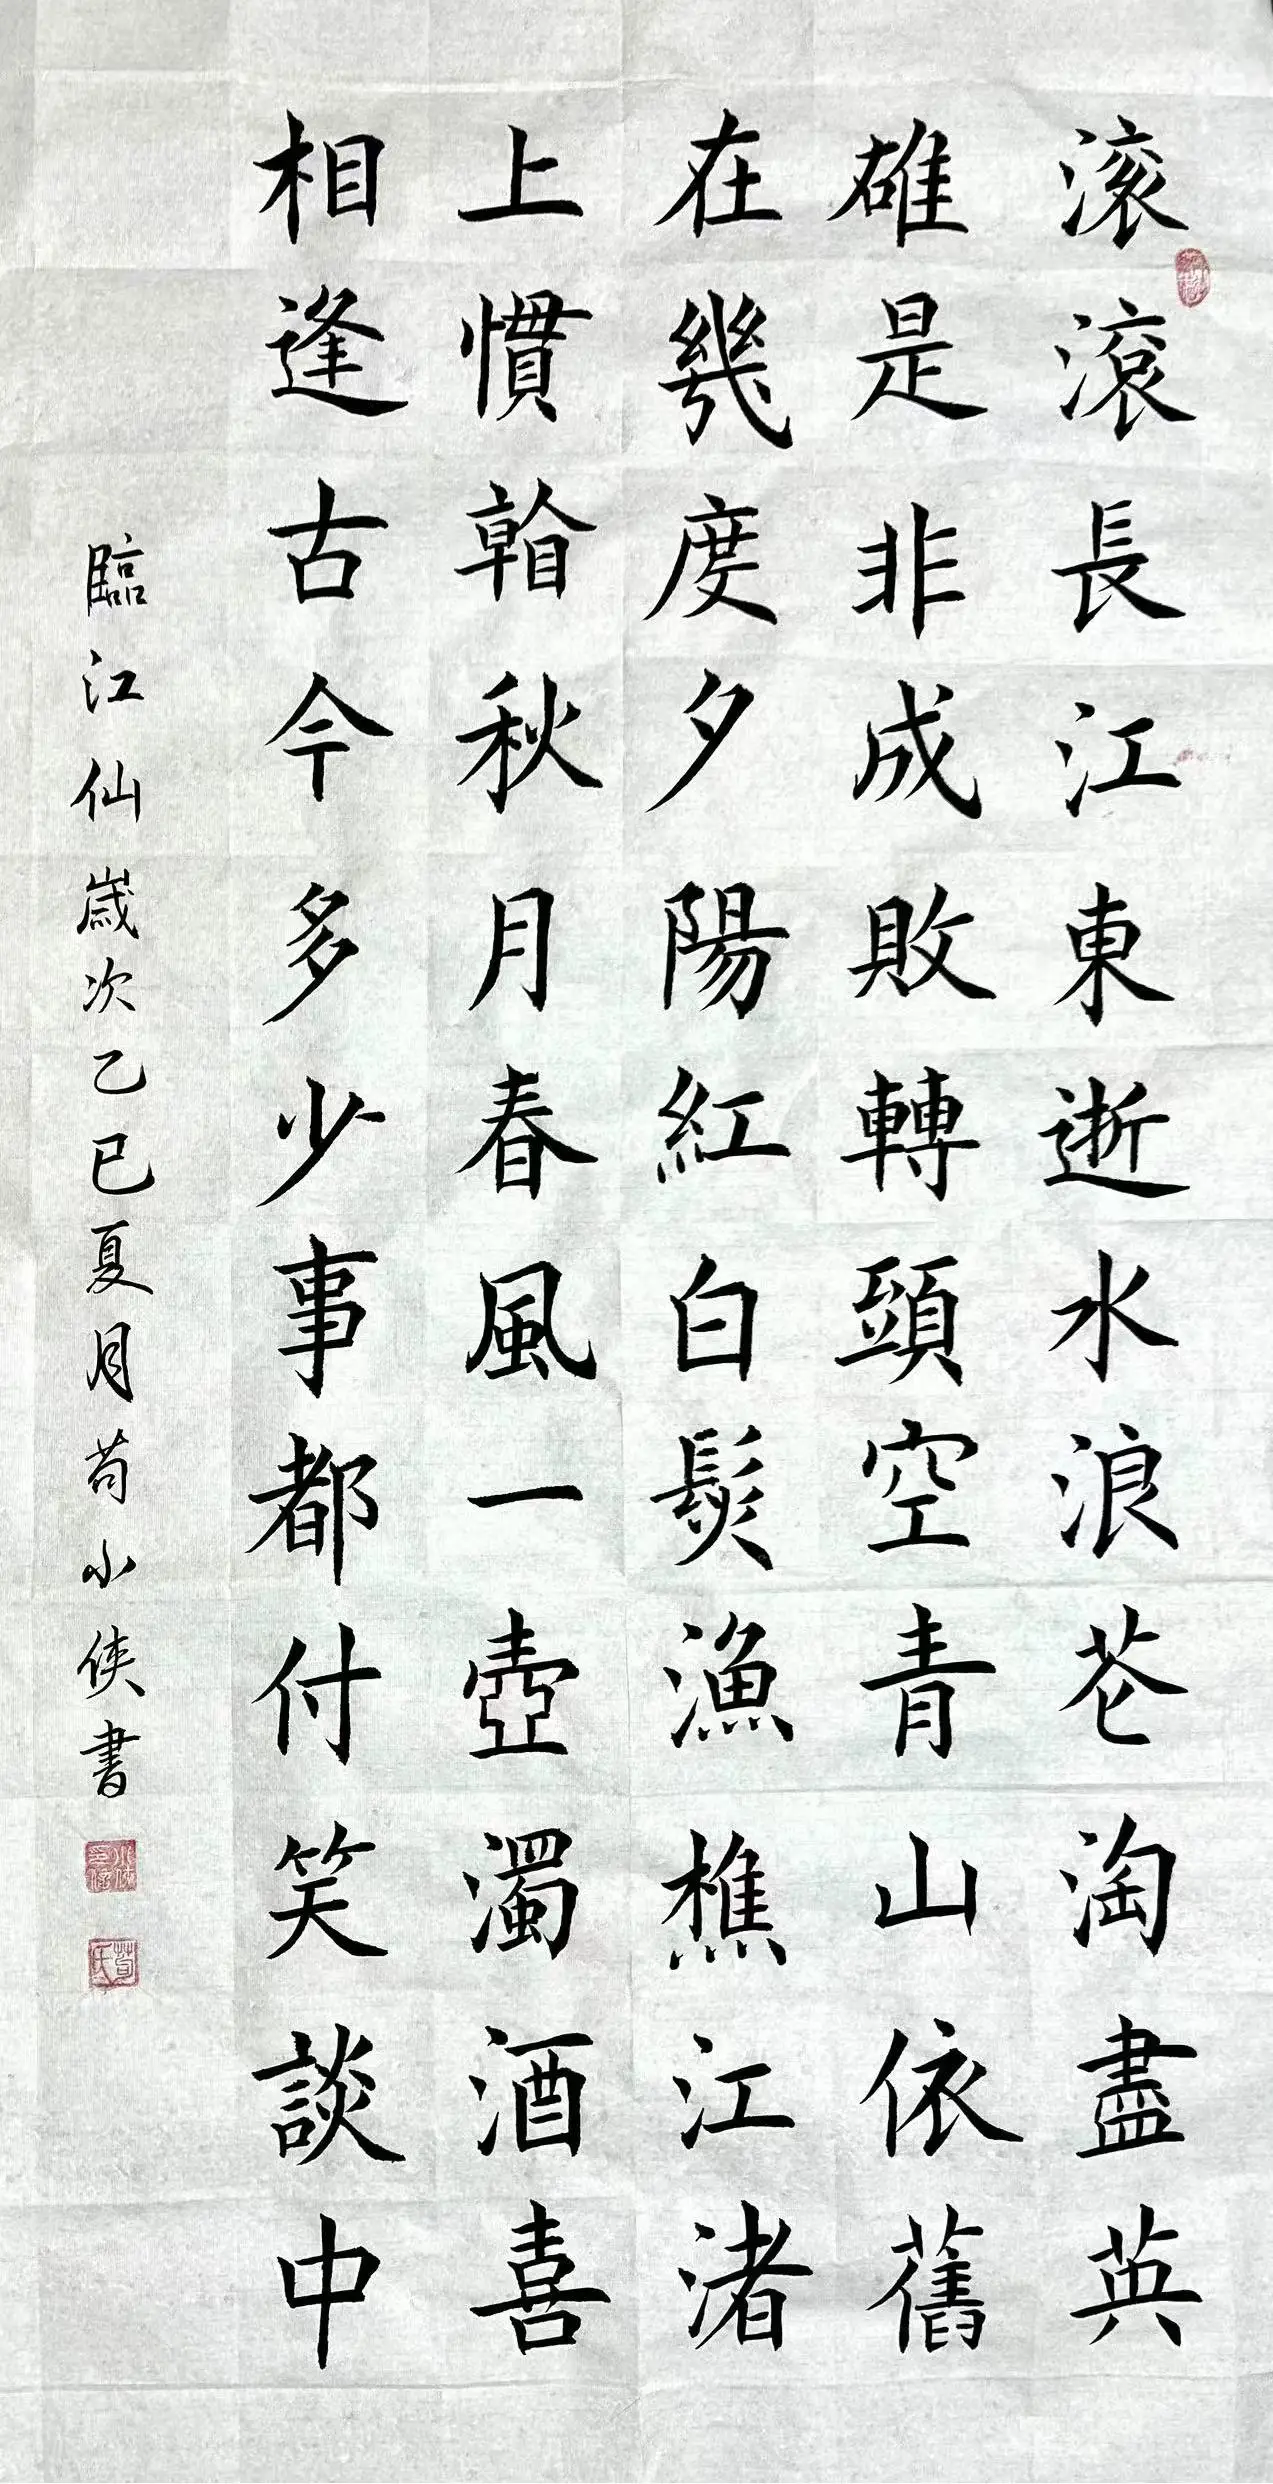 滚滾長江東逝水浪花淘盡英
雄是非成敗轉頭空青山依舊
在幾度夕陽紅白髮漁樵江渚
上慣看秋月春風一壺濁酒喜
相逢古今多少事都付笑談中
臨江仙歲次乙巳夏月荀小俠書
荀氏